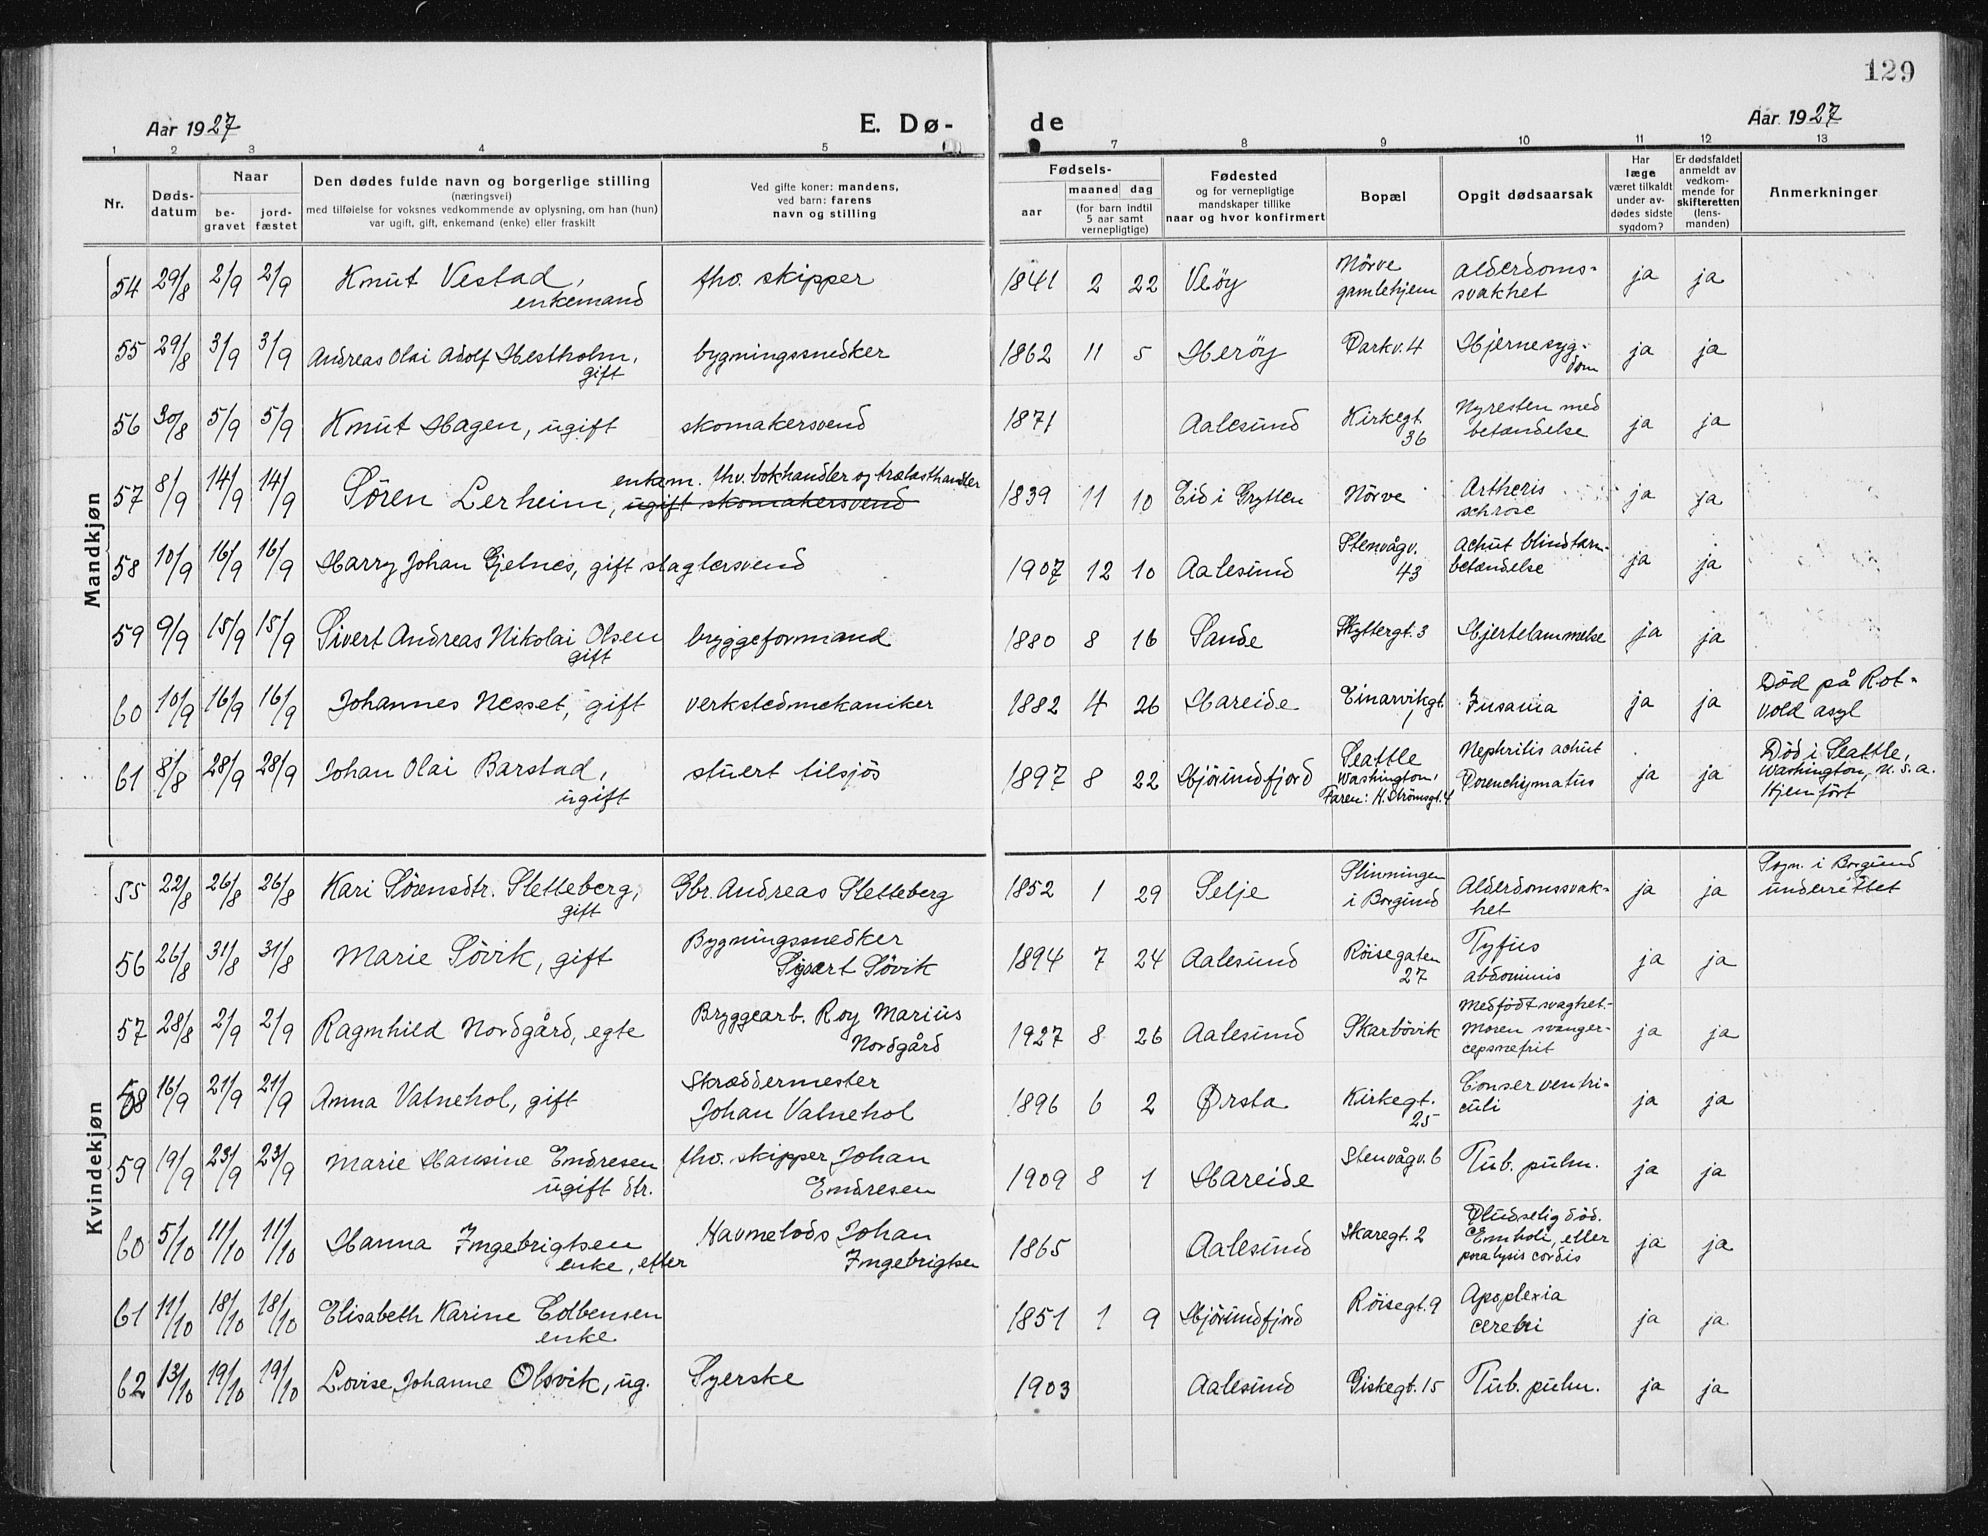 129
Aar 1927 E. Dø- de Aar. 1927
1 2 3 4 5 7 8 9 10 11 12 13
Nr. Døds-datum Naar be-gravet jord-fæstet Den dødes fulde navn og borgerlige stilling (næringsvei) med tilføielse for voksnes vedkommende av oplysning, om han (hun) var ugift, gift, enkemand (enke) eller fraskilt Ved gifte koner: mandens, ved barn: farens navn og stilling Fødsels- aar maaned dag (for barn indtil 5 aar samt vernepligtige) Fødested og for vernepligtige mandskaper tillike naar og hvor konfirmert Bopæl Opgit dødsaarsak Har læge været tilkaldt under av-dødes sidste sygdom? Er dødsfaldet anmeldt av vedkom-mende for skifteretten (lens-manden) Anmerkninger
Mandkjøn
54 29/8 2/9 2/9 Knut Vestad, enkemand fhv. skipper 1841 2 22 Veöy Nörve gamlehjem Alderdoms-svakhet ja ja
55 29/8 3/9 3/9 Andreas Olai Adolf Hestholm, gift bygningssnedker 1862 11 5 Heröy Parkv. 4 Hjernesyg-dom ja ja
56 30/8 5/9 5/9 Knut Hagen, ugift skomakersvend 1871 Aalesund Kirkegt. 36 Nyresten med betændelse ja ja
57 8/9 14/9 14/9 Sören Lerheim, ugift skomakersvend enkem. fhv. bokhandler og trælasthandler 1839 11 10 Eid i Grytten Nörve Artheris schrose ja ja
58 10/9 16/9 16/9 Harry Johan Gjelnes, gift slagtersvend 1907 12 10 Aalesund Stenvågv. 43 Achut blindtarm-betændelse ja ja
59 9/9 15/9 15/9 Sivert Andreas Nikolai Olsen gift bryggeformand 1880 8 16 Sande Skyttergt. 3 Hjertelammelse ja ja
60 10/9 16/9 16/9 Johannes Nesset, gift verkstedmekaniker 1882 4 26 Hareide Einarvikgt. 1 Insania ja ja Död på Rot-vold asyl
61 8/8 28/9 28/9 Johan Olai Barstad, ugift stuert tilsjös 1897 8 22 Hjörundfjord Seattle Washington, Faren: H. Strömsgt. 4 Nephritis achut Parenchymatus ja ja Död i Seattle, Washington, U.S.A. Hjemfört
Kvindekjøn
55 22/8 26/8 26/8 Kari Sörensdtr. Sletteberg, gift Gbr. Andreas Sletteberg 1852 1 29 Selje Slinningen i Borgund Alderdomssvak-het ja ja Sogn. i Borgund underrettet
56 26/8 31/8 31/8 Marie Sövik, gift Bygningssnedker Sivert Sövik 1894 7 24 Aalesund Röisegaten 27 Tyfus abdominis ja ja
57 28/8 2/9 2/9 Ragnhild Nordgård, egte Bryggearb. Roy Marius Nordgård 1927 8 26 Aalesund Skarbövik Medfödt svaghet. Moren svanger-cepsnefrit ja ja
58 16/9 21/9 21/9 Anna Vatnehol, gift Skræddermester Johan Vatnehol 1896 6 2 Ørsta Kirkegt. 25 Conser ventri-culi ja ja
59 19/9 23/9 23/9 Marie Hansine Endresen ugift dtr. fhv. skipper Johan Endresen 1909 8 1 Hareide Stenvågv. 6 Tub. pulm. ja ja
60 5/10 11/10 11/10 Hanna Ingebrigtsen enke, efter Havnelods Johan Ingebrigtsen 1865 Aalesund Skaregt. 2 Pludselig död. Emboli, eller paralysis cordis ja ja
61 11/10 18/10 18/10 Elisabeth Karine Colbensen enke 1851 1 9 Hjörundfjord Röisegt. 9 Apoplexia cerebri ja ja
62 13/10 19/10 19/10 Lovise Johanne Olsvik, ug. Syerske 1903 Aalesund Giskegt. 15 Tub. pulm. ja ja